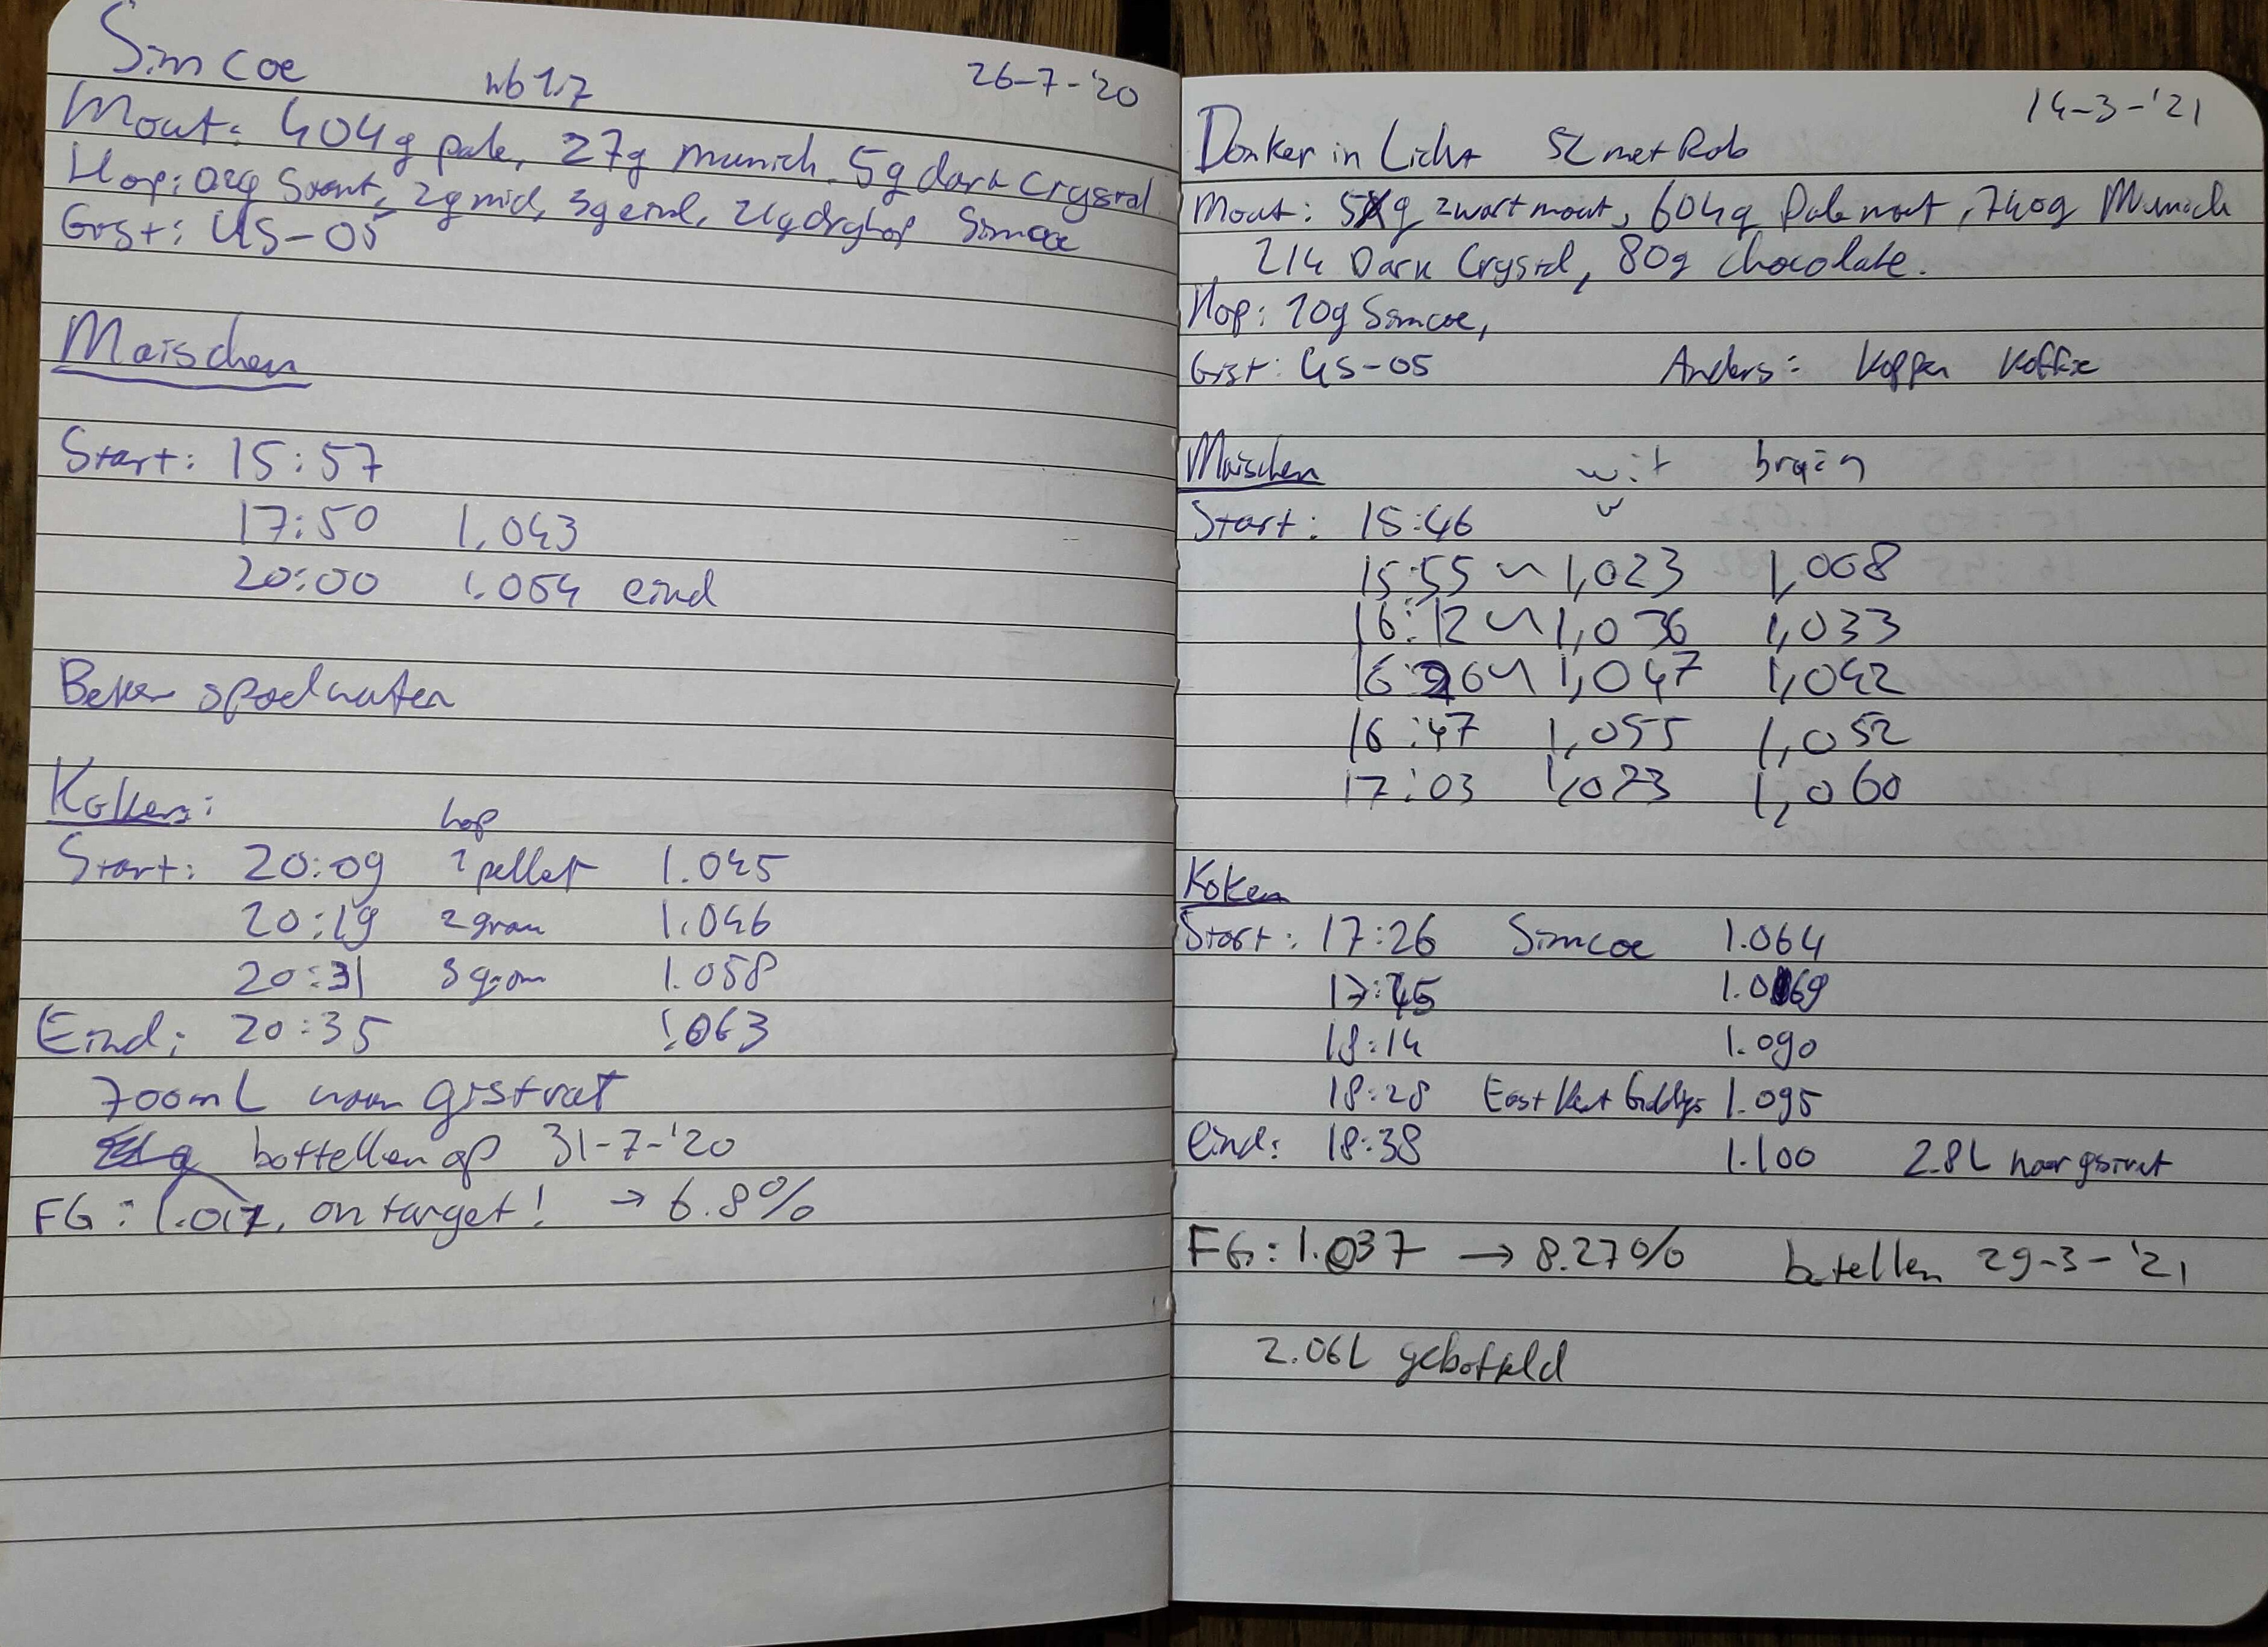 Simcoe wb 1.7 26-7-'20
Mout: 404g pale, 27g munich, 5g dark crystal
Hop: 0.2g Start, 2g mid, 3g eind, 2g dryhop Simcoe
Gist: US-05
Maischen
Start: 15:57
17:50 1.043
20:00 1.054 eind
Beker spoelwater
Koken:
hop
Start: 20:09 1 pellet 1.045
20:19 2 gram 1.046
20:31 3 gram 1.058
Eind: 20:35 1.063
700mL naar gistvat
bottellen op 31-7-'20
FG: 1.017, on target! → 6.8%
14-3-'21
Donker in Licht 5L met Rob
Mout: g zwart mout, 604g Pale mout, 740g Munich
, 214 Dark Crystal, 80g chocolate.
Hop: 10g Simcoe,
Gist: US-05 Anders: Koppen Koffie
Maischen wit bruin
Start: 15:46
15:55 ~ 1,023 1,008
16:12 ~ 1,036 1,033
16:26 ~ 1,047 1,042
16:47 1,055 1,052
17:03 1,023 1,060
Koken
Start: 17:26 Simcoe 1.064
17:45 1.069
18:14 1.090
18:28 East Kent Goldings 1.095
Eind: 18:38 1.100 2.8L naar gistvat
FG: 1.037 → 8.27% botellen 29-3-'21
2.06L gebotteld